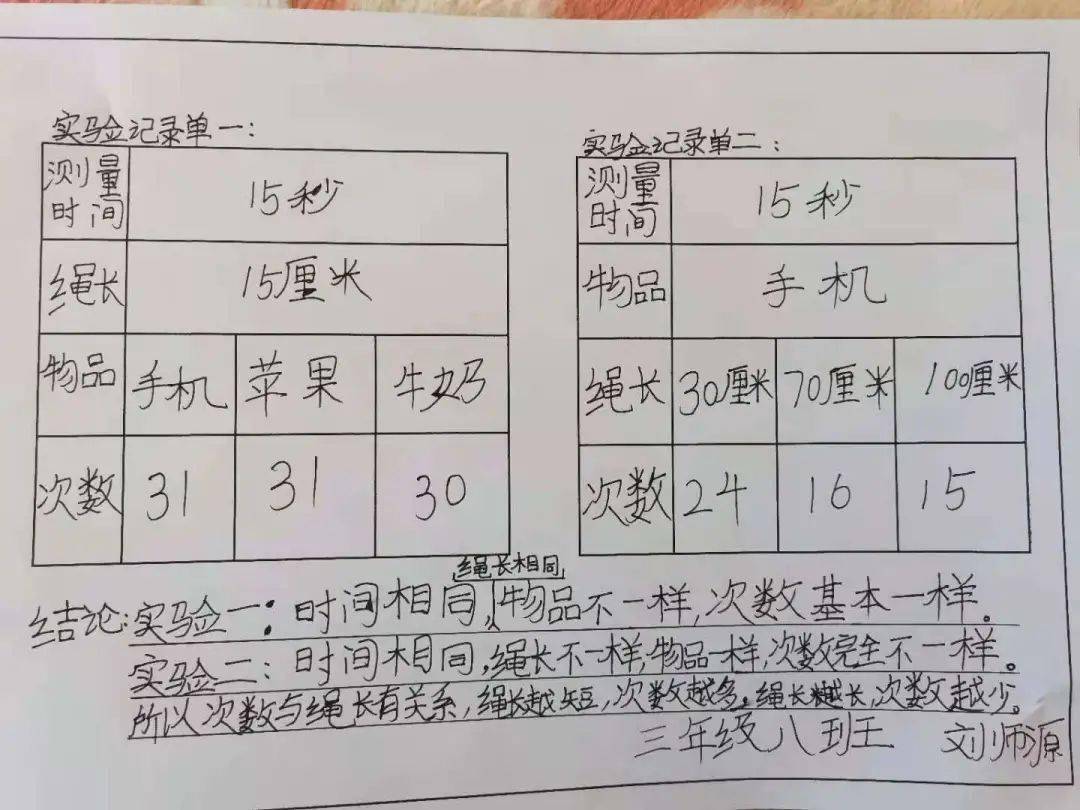 实验记录单一:
测量时间 15秒
绳长 15厘米
物品 手机 苹果 牛奶
次数 31 31 30
实验记录单二:
测量时间 15秒
物品 手机
绳长 30厘米 70厘米 100厘米
次数 24 16 15
绳长相同
结论:实验一:时间相同,物品不一样,次数基本一样。
实验二:时间相同,绳长不一样,物品一样,次数完全不一样。
所以次数与绳长有关系,绳长越短,次数越多。绳长越长,次数越少。
三年级八班 刘师源